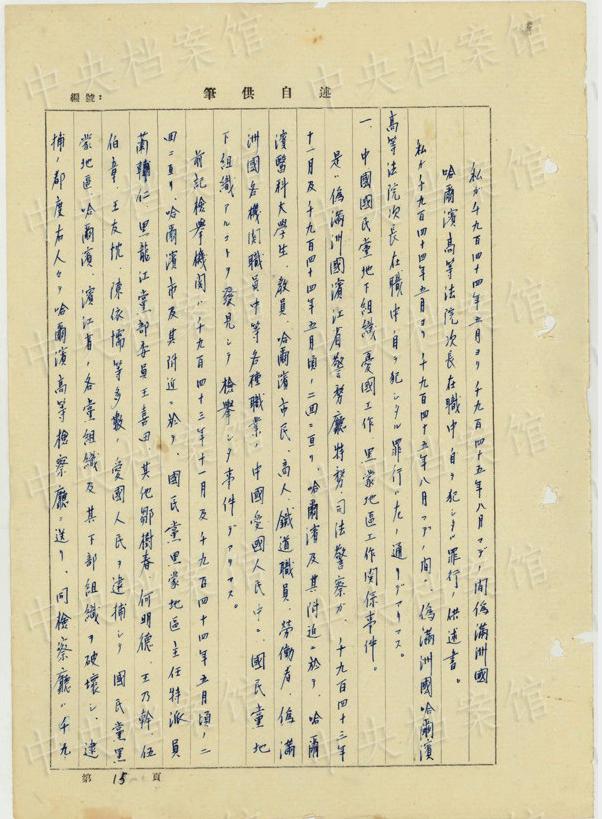 述自供筆
編號:
私ガ千九百四十四年五月ヨリ千九百四十五年八月マデノ間偽滿洲國
哈爾濱高等法院次長在職中自ラ犯シタル罪行ノ供述書。
私ガ千九百四十四年五月ヨリ千九百四十五年八月マデノ間、偽滿洲國哈爾濱
高等法院次長在職中自ラ犯シタル罪行ハ左ノ通リデアリマス。
一、中國國民黨地下組織憂國工作、黑蒙地區工作関係事件。
是ハ偽滿洲國濱江省警務廳特務、司法警察ガ、千九百四十三年
十一月及千九百四十四年五月頃ノ二回ニ亘リ、哈爾濱及其附近ニ於テ、哈爾
濱醫科大學生、教員、哈爾濱市民、商人、鐵道職員、勞働者、偽滿
洲國各機関職員中等各種職業ノ中國愛國人民中ニ、國民黨地
下組織アルコトヲ發見シテ檢擧シタ事件デアリマス。
前記檢擧機関ハ千九百四十三年十一月及千九百四十四年五月頃ノ二
回ニ亘リ、哈爾濱市及其附近ニ於テ、國民黨黑蒙地區主任特派員
蘭輔仁、黑龍江黨部委員王喜田、其他鄒樹春、何明德、王乃幹、伍
伯章、王友忱、陳依儒等多數ノ愛國人民ヲ逮捕シテ國民黨黑
蒙地區、哈爾濱、濱江省ノ各黨組織及其下部組織ヲ破壞シ、逮
捕ノ都度右人々ヲ哈爾濱高等檢察廳ニ送リ、同檢察廳ハ千九
第15頁
中央档案馆